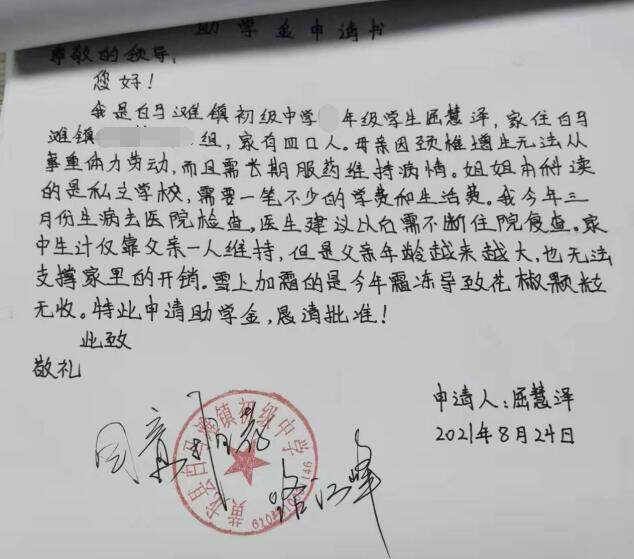 助学金申请书
尊敬的领导:
您好!
我是白马滩镇初级中学 年级学生屈慧泽,家住白马
滩镇 组,家有四口人。母亲因颈椎增生无法从
事重体力劳动,而且需长期服药维持病情。姐姐本科读
的是私立学校,需要一笔不少的学费和生活费。我今年三
月份生病去医院检查,医生建议以后需不断住院复查。家
中生计仅靠父亲一人维持,但是父亲年龄越来越大,也无法
支撑家里的开销。雪上加霜的是今年霜冻导致花椒颗粒
无收。特此申请助学金,恳请批准!
此致
敬礼
申请人:屈慧泽
2021年8月24日
同意
黄龙县白马滩镇初级中学